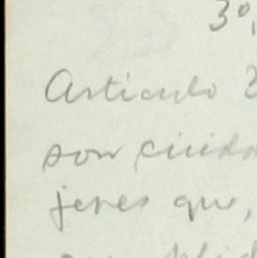 3º,
Artículo 2
son ciuda
jeres que,